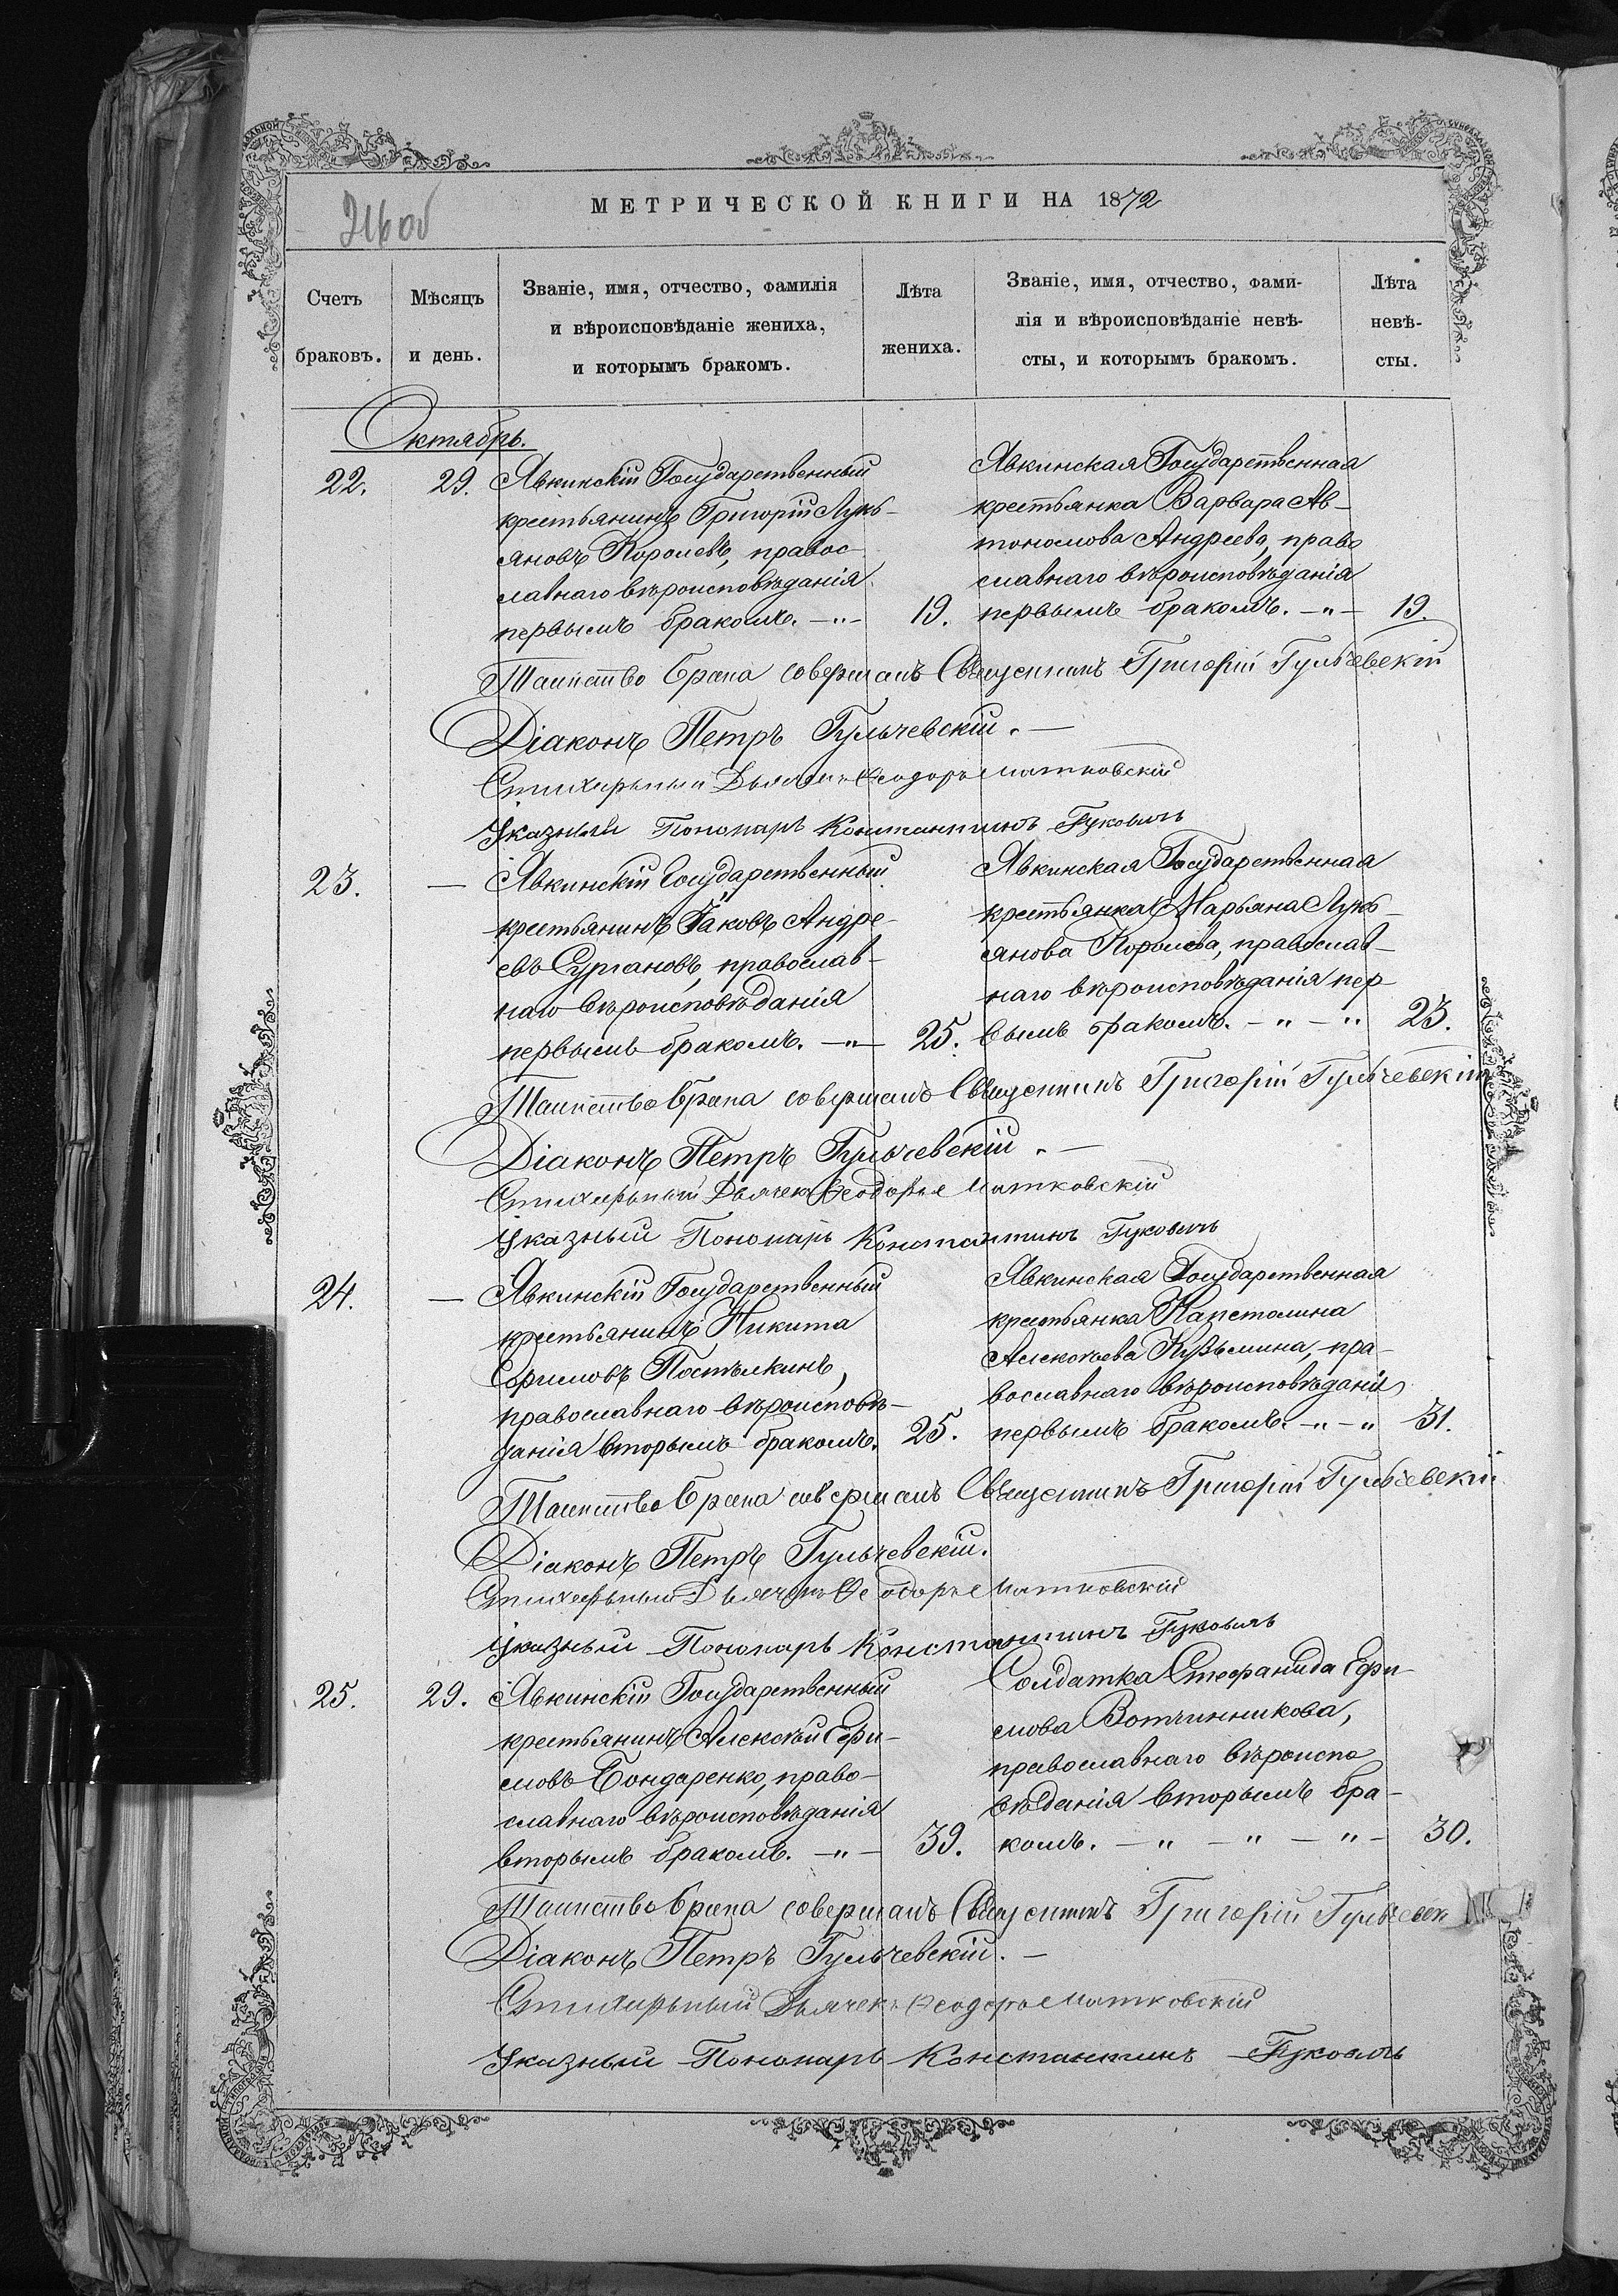 МЕТРИЧЕСКОЙ КНИГИ НА 1872
216 об
Счетъ браковъ.
Мѣсяцъ и день.
Званіе, имя, отчество, фамилія
и вѣроисповѣданіе жениха,
и которымъ бракомъ.
Лѣта жениха.
Званіе, имя, отчество, фами-
лія и вѣроисповѣданіе невѣ-
сты, и которымъ бракомъ.
Лѣта невѣ-
сты.
Октябрь.
22. 29. Явкинскій Государственный
крестьянинъ Григорій Лукь-
яновъ Королевъ, правос-
лавнаго вѣроисповѣданія
первымъ бракомъ. —"— 19.
Явкинская Государственная
крестьянка Варвара Ав-
тономова Андреева, право
славнаго вѣроисповѣданія
первымъ бракомъ. —"— 19.
Таинство брака совершалъ Священникъ Григорій Гульчевскій
Діаконъ Петръ Гульчевскій. —
Стихарный Дьячекъ Ѳеодоръ Матковскій
Указный Пономарь Константинъ
23. — Явкинскій Государственный
крестьянинъ Яковъ Андре-
евъ Сургановъ, православ-
наго вѣроисповѣданія
первымъ бракомъ. —"— 25.
Явкинская Государственная
крестьянка Марьяна Лукь-
янова Королева, православ-
наго вѣроисповѣданія пер-
вымъ бракомъ. — " — " 23.
Таинство брака совершалъ Священникъ Григорій Гульчевскій
Діаконъ Петръ Гульчевскій. —
Стихарный Дьячекъ Ѳеодоръ Матковскій
Указный Пономарь Константинъ
24. — Явкинскій Государственный
крестьянинъ Никита
Ефимовъ
православнаго вѣроисповѣ-
данія вторымъ бракомъ. 25.
Явкинская Государственная
крестьянка Капетолина
Алексѣева Кузьмина, пра-
вославнаго вѣроисповѣданія
первымъ бракомъ. — " — " 31.
Таинство брака совершалъ Священникъ Григорій Гульчевскій
Діаконъ Петръ Гульчевскій.
Стихарный Дьячекъ Ѳеодоръ Матковскій
Указный Пономарь Константинъ
25. 29. Явкинскій Государственный
крестьянинъ Алексѣй Ефи-
мовъ Бондаренко, право-
славнаго вѣроисповѣданія
вторымъ бракомъ. —"— 39.
Солдатка Стефанида Ефи-
мова Вотчинникова,
православнаго вѣроиспо
вѣданія вторымъ бра-
комъ. — " — " — " — 30.
Таинство брака совершалъ Священникъ Григорій
Діаконъ Петръ Гульчевскій. —
Стихарный Дьячекъ Ѳеодоръ Матковскій
Указный Пономарь Константинъ